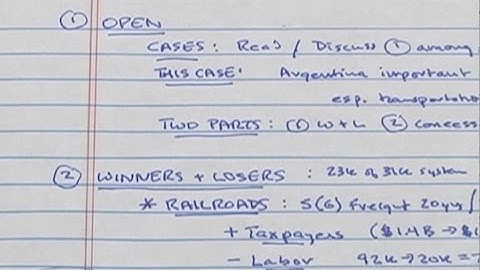 ① OPEN
CASES: Read / Discuss ① among
THIS CASE: Argentina important
esp. transportation
TWO PARTS: ① W+L ② concess
② WINNERS + LOSERS : 23k of 31k system
* RAILROADS: 5(6) Freight 20yrs/
+ Taxpayers ($1.4B → $1
- Labor 92k → 20k =